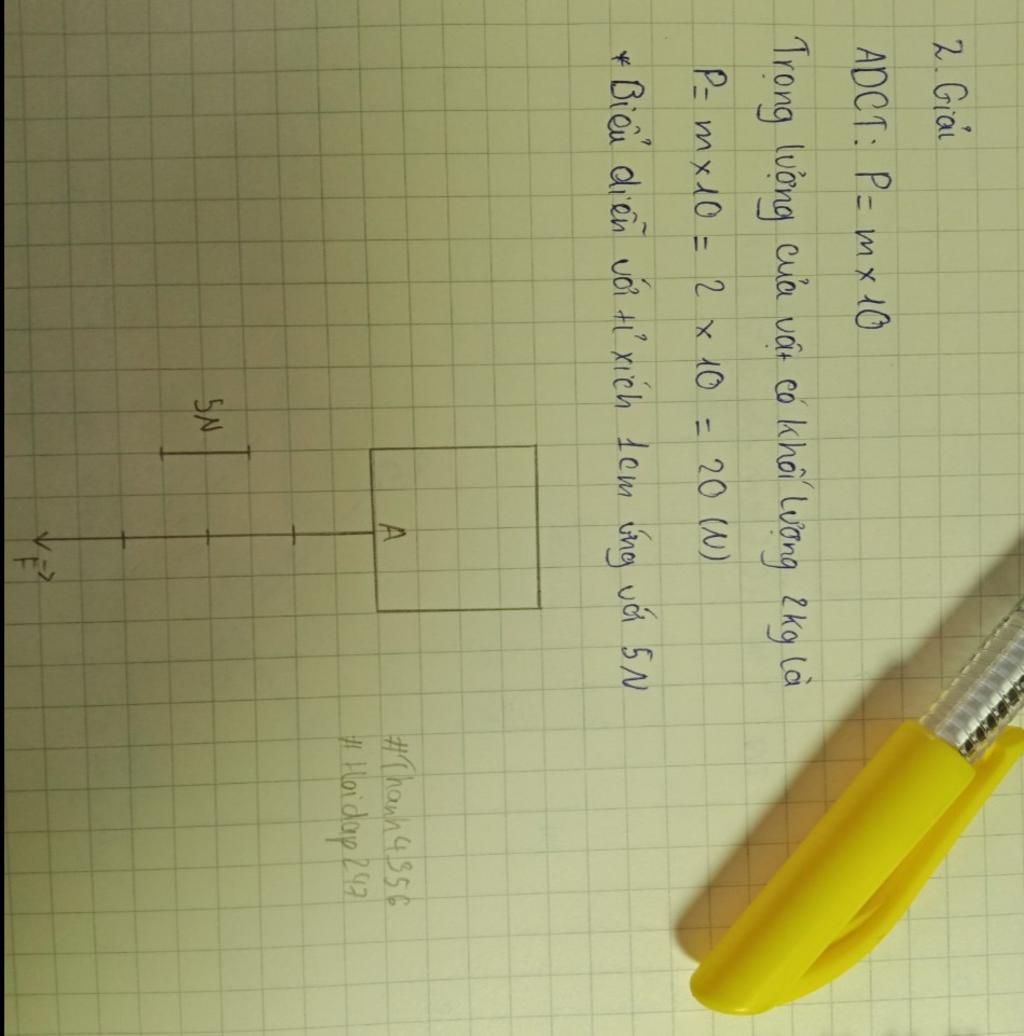 2. Giải
ADCT: P = m x 10
Trọng lượng của vật có khối lượng 2kg là
P = m x 10 = 2 x 10 = 20 (N)
* Biểu diễn với tỉ xích 1cm ứng với 5N
A
5N
F
#Thanh4356
#Hoidap247